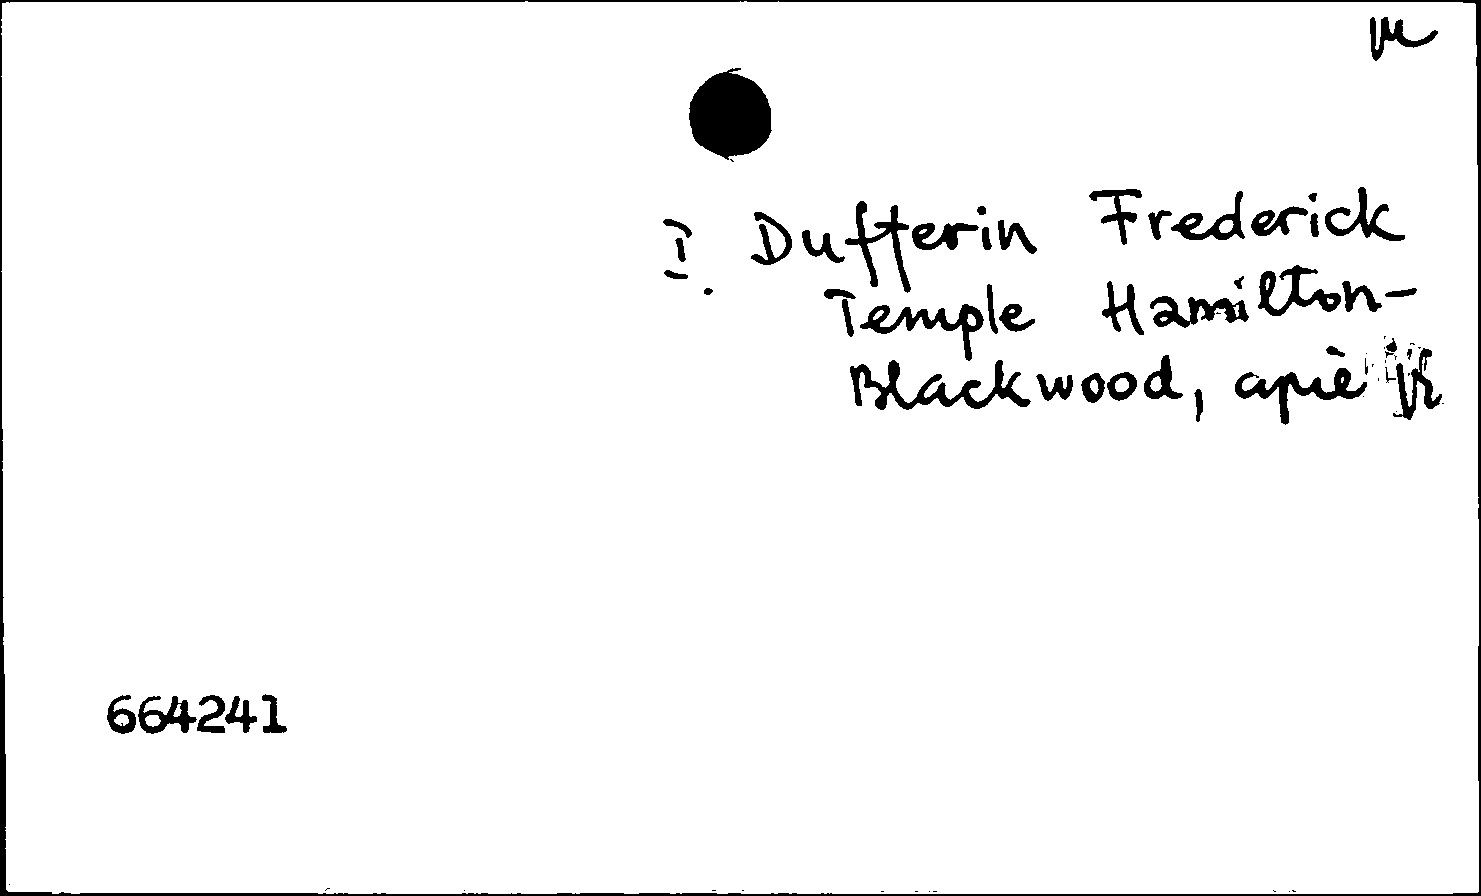 I. Dufferin Frederick
Temple Hamilton-
Blackwood, apiè
664241